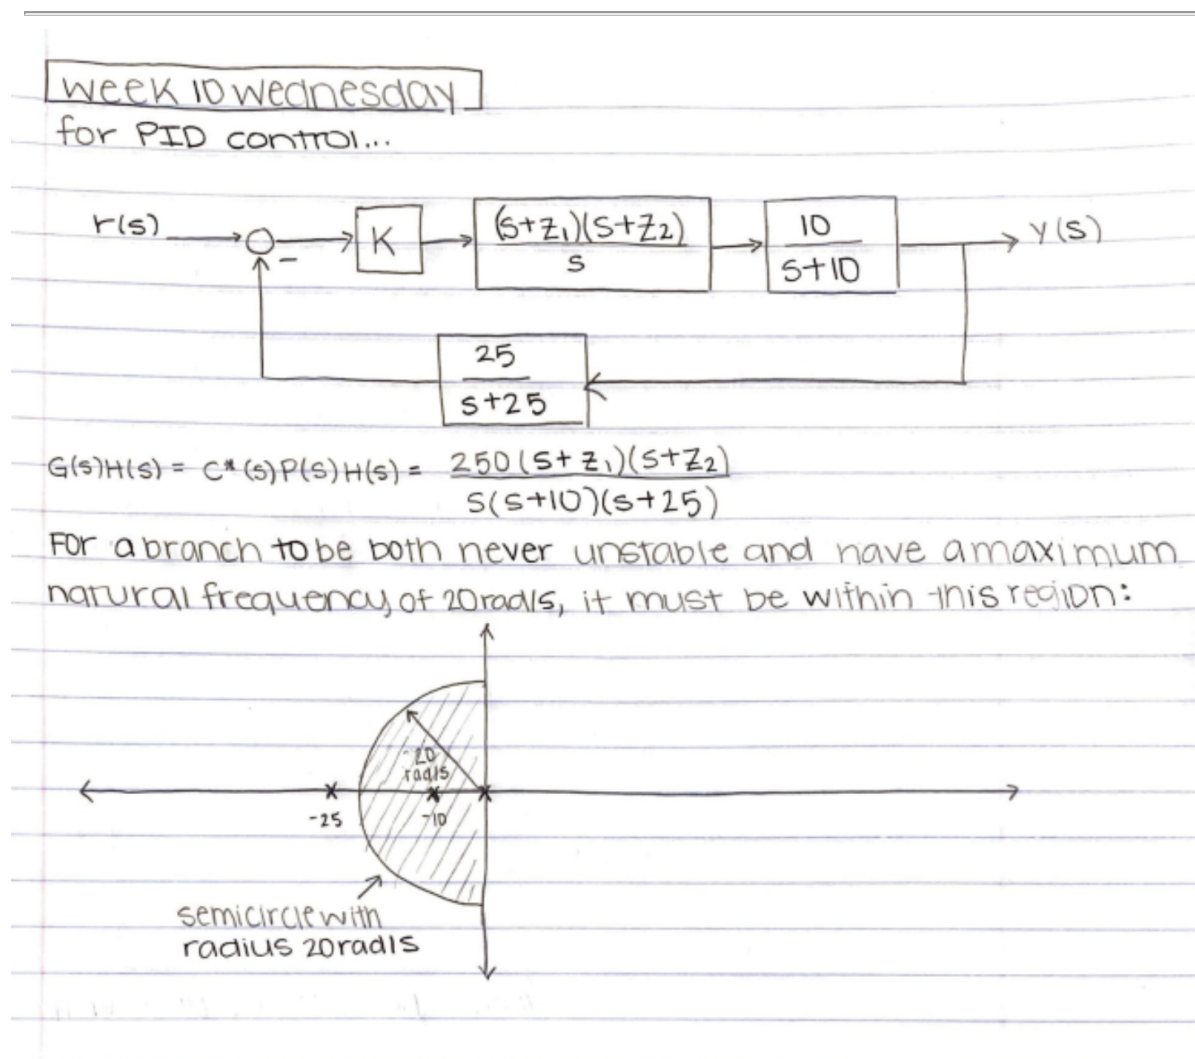 week 10 wednesday
for PID control...
r(s)
-
K
(s+z₁)(s+z₂)
s
10
s+10
y(s)
25
s+25
G(s)H(s) = C*(s)P(s)H(s) = 250(s+z₁)(s+z₂)
s(s+10)(s+25)
For a branch to be both never unstable and have a maximum
natural frequency of 20rad/s, it must be within this region:
-20
rad/s
-25
-10
semicircle with
radius 20rad/s